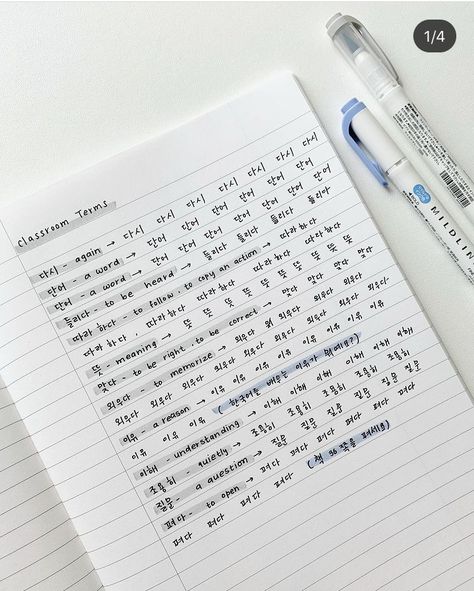 1/4
Classroom Terms
다시 - again → 다시 다시 다시 다시 다시 다시 다시
단어 - a word → 단어 단어 단어 단어 단어 단어
단어 - a word → 단어 단어 단어 단어 단어 단어
들리다 - to be heard → 들리다 들리다 들리다 들리다
따라하다 - to follow, to copy an action → 따라하다
따라하다, 따라하다 따라하다 따라하다 따라하다
뜻 - meaning → 뜻 뜻 뜻 뜻 뜻 뜻 뜻 뜻
맞다 - to be right, to be correct → 맞다 맞다 맞다
외우다 - to memorize → 외우다 외우다 외우다
외우다 외우다 외우다 외우다 외우다 외우다 외우다
이유 - a reason → 이유 이유 이유 이유 이유 이유 이유
이유 이유 이유 (한국어를 배우는 이유가 뭐예요?)
이해 - understanding → 이해 이해 이해 이해 이해 이해
조용히 - quietly → 조용히 조용히 조용히 조용히 조용히
질문 - a question → 질문 질문 질문 질문 질문
펴다 - to open → 펴다 펴다 펴다 펴다 펴다 펴다
펴다 펴다 펴다 펴다 (책 36 쪽을 펴세요)
MILDLIN